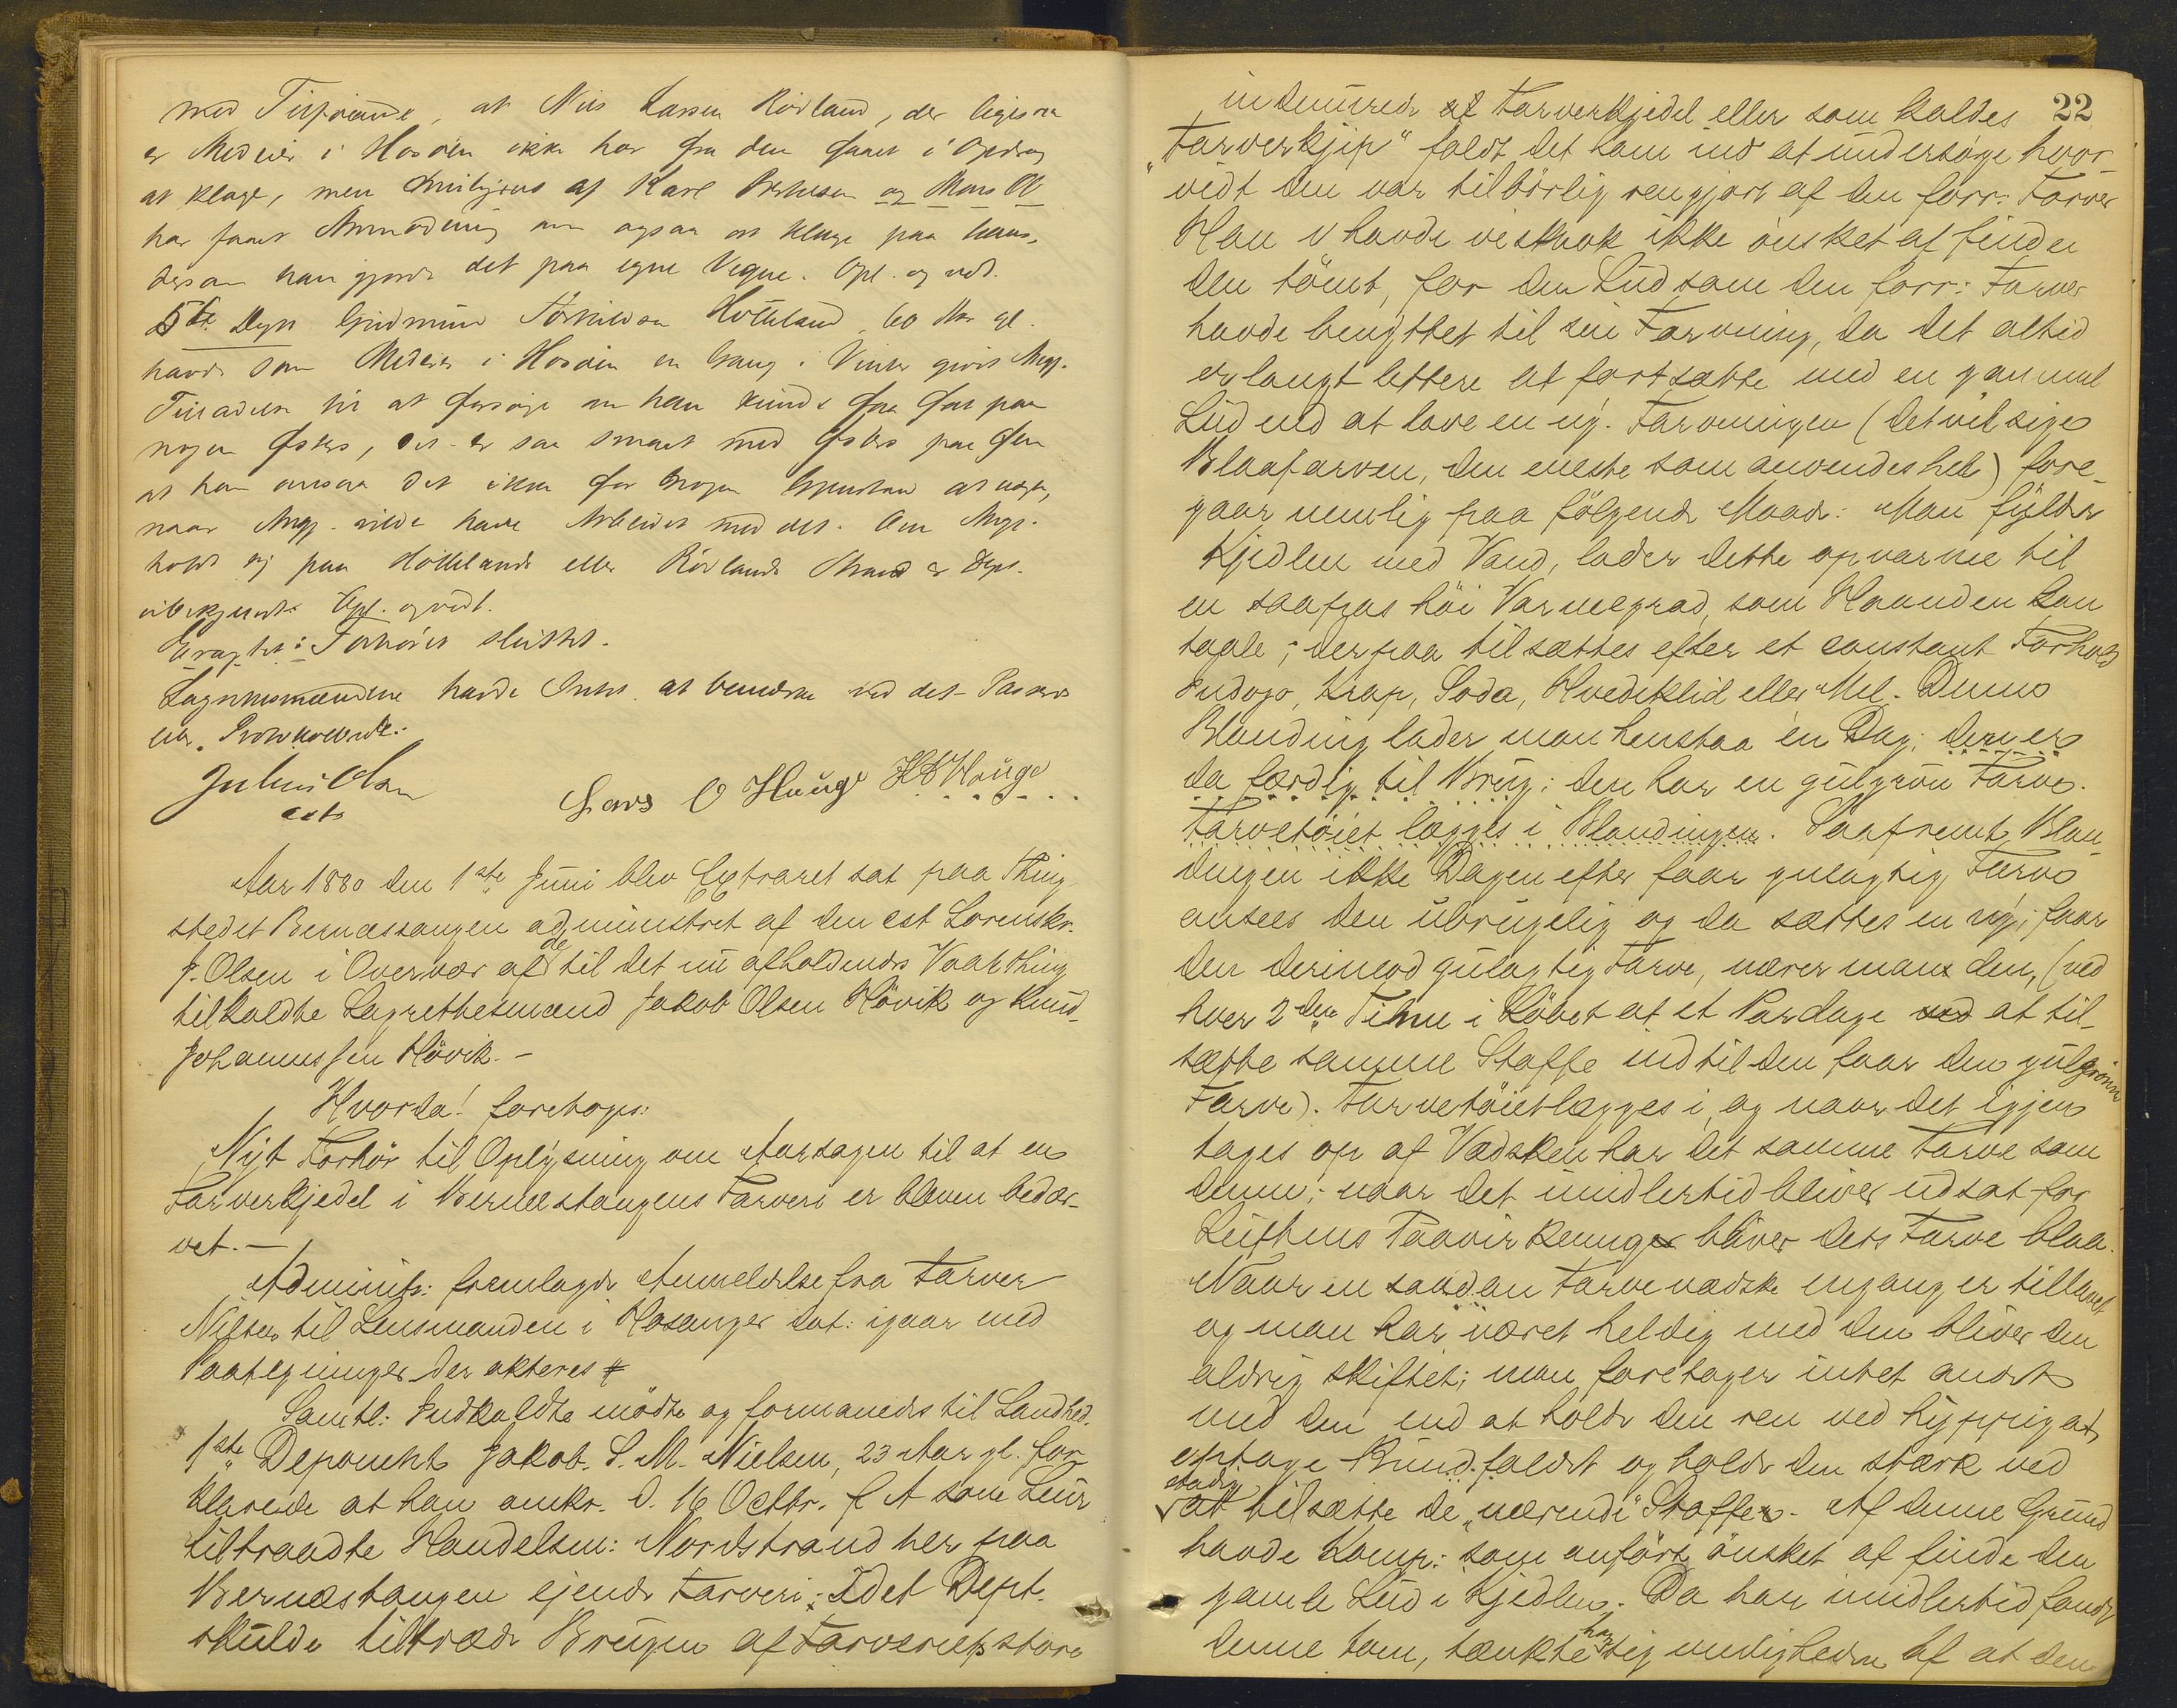 med Tilføiende, at Nils Larsen Rövland, der ligesaa
er Medeier i Hosöien ikke har fra den faaet i Opdrag
at klage, men af Karl og Mons Ol
har faaet Anmodning om ogsaa at klage paa hans,
dersom han gjorde det paa egne Vegne. Opl. og vedt.
5te Dept Gudmund Hötteland, 60 Aar gl.
havde som Medeier i Hosöien en Gang i Vinter givet Angj.
Tilladelse til at forsøge om han kunde faa fat paa
nogen Østers, det er saa smaat med Østers paa den
at han ansaa det ikke for nogen Gjenstand at nægte,
naar Angj. vilde have Arbeidet med det. Om Angj.
holdt sig paa Höttelands eller Rövlands Strand er Dept.
ubekjendt. Opl. og vedt.
Eragtet: Forhöret sluttet.
Lagrettesmændene havde Intet at bemærke ved det Passerede
eller Protokollerede.
Julius Olsen
cst
Lars O Hauge H H Hauge
Aar 1880 den 1ste Juni blev Extraret sat paa Thing
stedet Bernæstangen administret af den cst Sorenskr.
J. Olsen i Overvær af de til det nu afholdendes Vaarthing
tilkaldte Lagrettesmænd Jakob Olsen Hövik og Knud
Johannessen Hövik. –
Hvorda! foretoges:
Nyt Forhör til Oplysning om Aarsagen til at en
Farverkjedel i Bernæstangens Farveri er bleven bedær-
vet. –
Administr: fremlagde Anmeldelse fra Farver
Nielsen til Lensmanden i Hosanger dat: igaar med
Paategninger der akteres
Samtl: Indkaldte mödte og formanedes til Sandhed.
1ste Deponent Jakob S. M. Nielsen, 23 Aar gl. for-
klarede at han omkr. d. 16 Octbr. f A som Leier
tiltraadte Handelsm: Nordstrand her paa
Bernæstangen ejende Farveri; Idet Dept.
skulde tiltræde Brugen af Farveriets store
22
indemurede Farverkjedel eller som kaldes
"Farverkjip" faldt det ham ind at undersöge hvor-
vidt den var tilbörlig rengjort af den forr: Farver
Han havde ikke önsket at finde
den tömt, for den Lud som den forr: Farver
havde benyttet til sin Farvning, da det altid
er langt lettere at fortsætte med en gammel
Lud end at lave en ny. Farvningen (det vil sige
Blaafarven, den eneste som anvendes her) fore-
gaar nemlig paa fölgende Maade: Man fylder
Kjedlen med Vand, lader dette opvarme til
en saapas höi Varmegrad, som Haanden kan
taale; derpaa tilsættes efter et constant Forhold
Indogo, Krap, Soda, Hvedeklid eller Mel. Denne
Blanding lader man henstaa en Dag; den er
da færdig til Brug; den har en gulgrön Farve.
Farvetöiet lægges i Blandingen. Saafremt Blan-
dingen ikke Dagen efter faar gulagtig Farve
ansees den ubrugelig og da sættes en ny; faar
den derimod gulagtig Farve, nærer man den, (ved
hver 2den Time i Löbet af et Par dage at til-
sætte samme Stoffe indtil den faar den gulgrönne
Farve). Farvetöiet lægges i, og naar det igjen
tages op af Vædsken har det samme Farve som
denne; naar det imidlertid bliver udsat for
Luftens Paavirkning bliver dets Farve blaa.
Naar en saadan Farvevædske engang er tillavet
og man har været heldig med den bliver den
aldrig skiftet; man foretager intet andet
med den end at holde den ren ved hyppig at
optage Bundfaldet og holde den stærk ved
stadig
at tilsætte de "nærende" Stoffe. Af denne Grund
havde Komp: som anfört önsket at finde den
gamle Lud i Kjedlen. Da han imidlertid fandt
denne tom, tænkte han sig Muligheden af at den